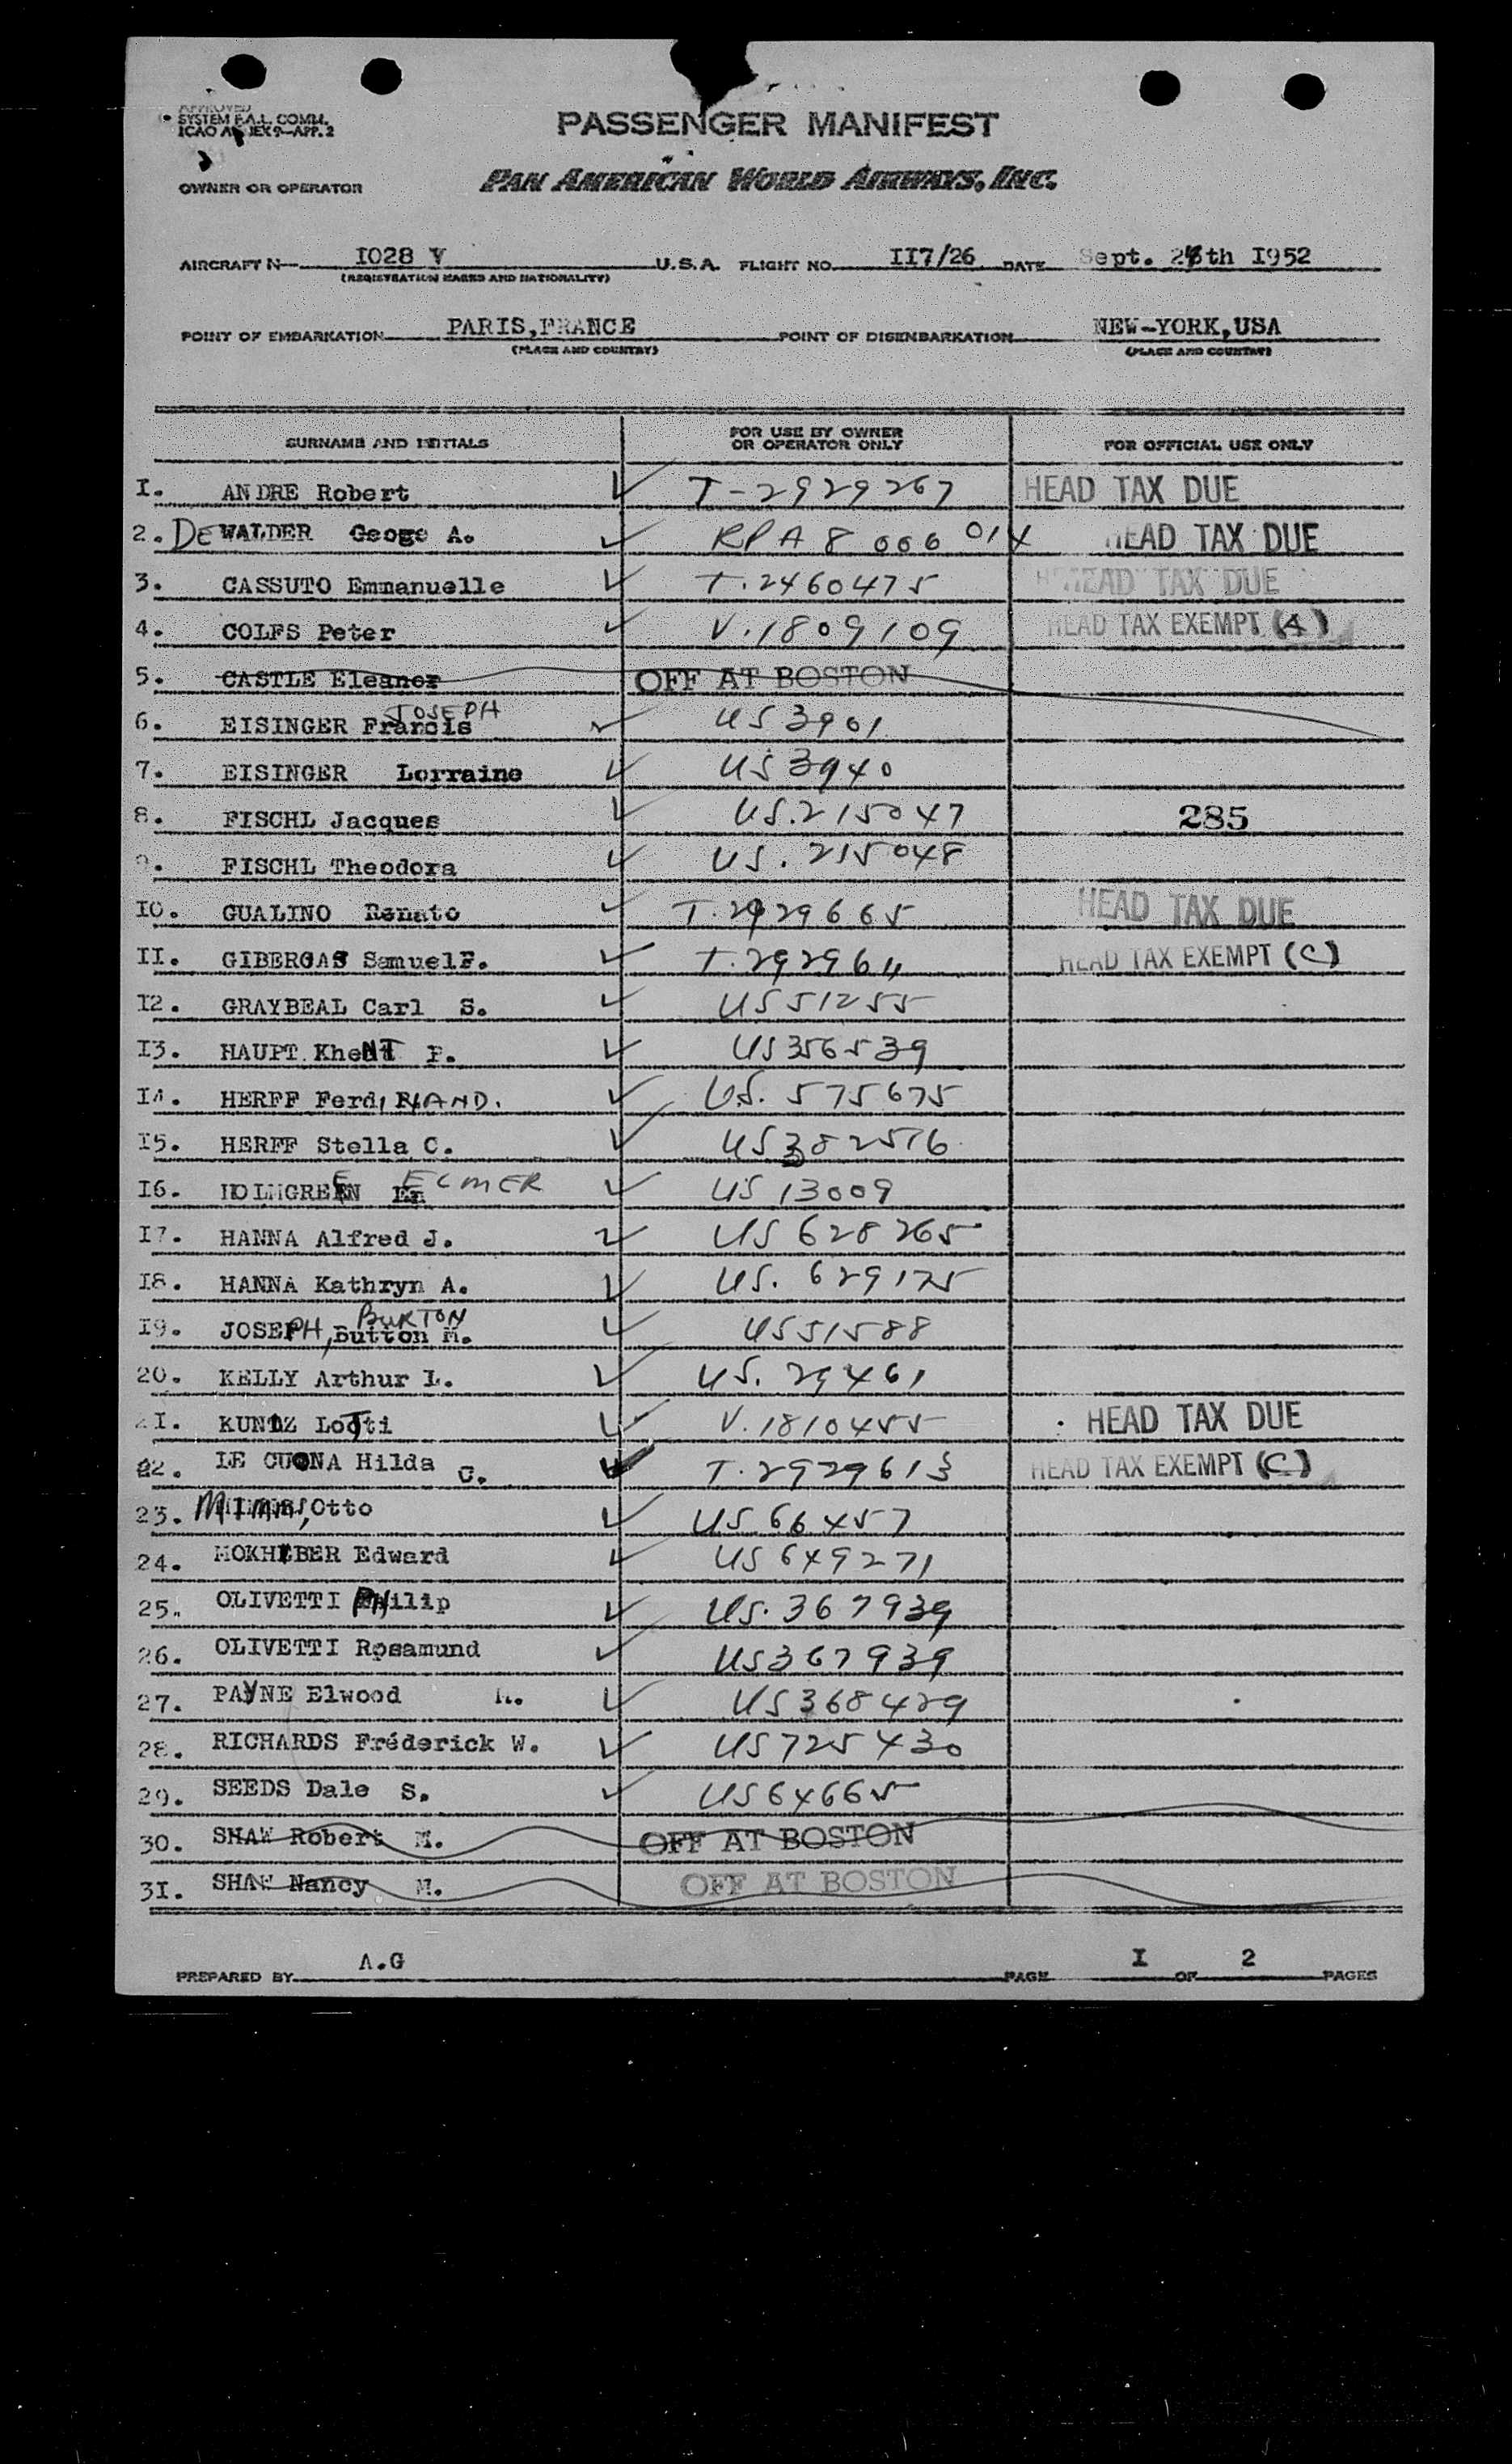 APPROVED
SYSTEM F.A.L. COMM.
ICAO ANNEX 9-APP. 2
PASSENGER MANIFEST
OWNER OR OPERATOR PAN AMERICAN WORLD AIRWAYS, INC.
AIRCRAFT N- I028 V U.S.A. FLIGHT NO. II7/26 DATE Sept. 2 th I952
(REGISTRATION MARKS AND NATIONALITY)
POINT OF EMBARKATION PARIS,FRANCE POINT OF DISEMBARKATION NEW-YORK,USA
(PLACE AND COUNTRY) (PLACE AND COUNTRY)
SURNAME AND INITIALS FOR USE BY OWNER OR OPERATOR ONLY FOR OFFICIAL USE ONLY
I. ANDRE Robert T-2929267 HEAD TAX DUE
2. DEWALDER Geoge A. RPA 8 000 014 HEAD TAX DUE
3. CASSUTO Emmanuelle T.2460475 HEAD TAX DUE
4. COLFS Peter V.1809109 HEAD TAX EXEMPT (A)
5. CASTLE Eleanor OFF AT BOSTON
JOSEPH
6. EISINGER Francis US 3901
7. EISINGER Lorraine US 3940
8. FISCHL Jacques US.215047 285
9. FISCHL Theodora US.215048
I0. GUALINO Renato T.2929665 HEAD TAX DUE
II. GIBERGAS Samuel F. T.2929611 HEAD TAX EXEMPT (C)
I2. GRAYBEAL Carl S. US 51255
I3. HAUPT F. US 356539
I4. HERFF FerdiNAND. US. 575675
I5. HERFF Stella C. US 382516
I6. HOLMGREEN ELMER US 13009
I7. HANNA Alfred J. US 628265
I8. HANNA Kathryn A. US. 629125
BURTON
I9. JOSEPH, Button M. US 51588
20. KELLY Arthur L. US. 29461
2I. V.1810455 HEAD TAX DUE
22. LE CUONA Hilda C. T.2929613 HEAD TAX EXEMPT (C)
23. Otto US 66457
24. MOKHIBER Edward US 649271
25. OLIVETTI PHilip US.367939
26. OLIVETTI Rosamund US 367939
27. PAYNE Elwood US 368429
28. RICHARDS Fréderick W. US 725430
29. SEEDS Dale S. US 64665
30. SHAW Robert M. OFF AT BOSTON
3I. SHAW Nancy M. OFF AT BOSTON
PREPARED BY A.G PAGE I OF 2 PAGES